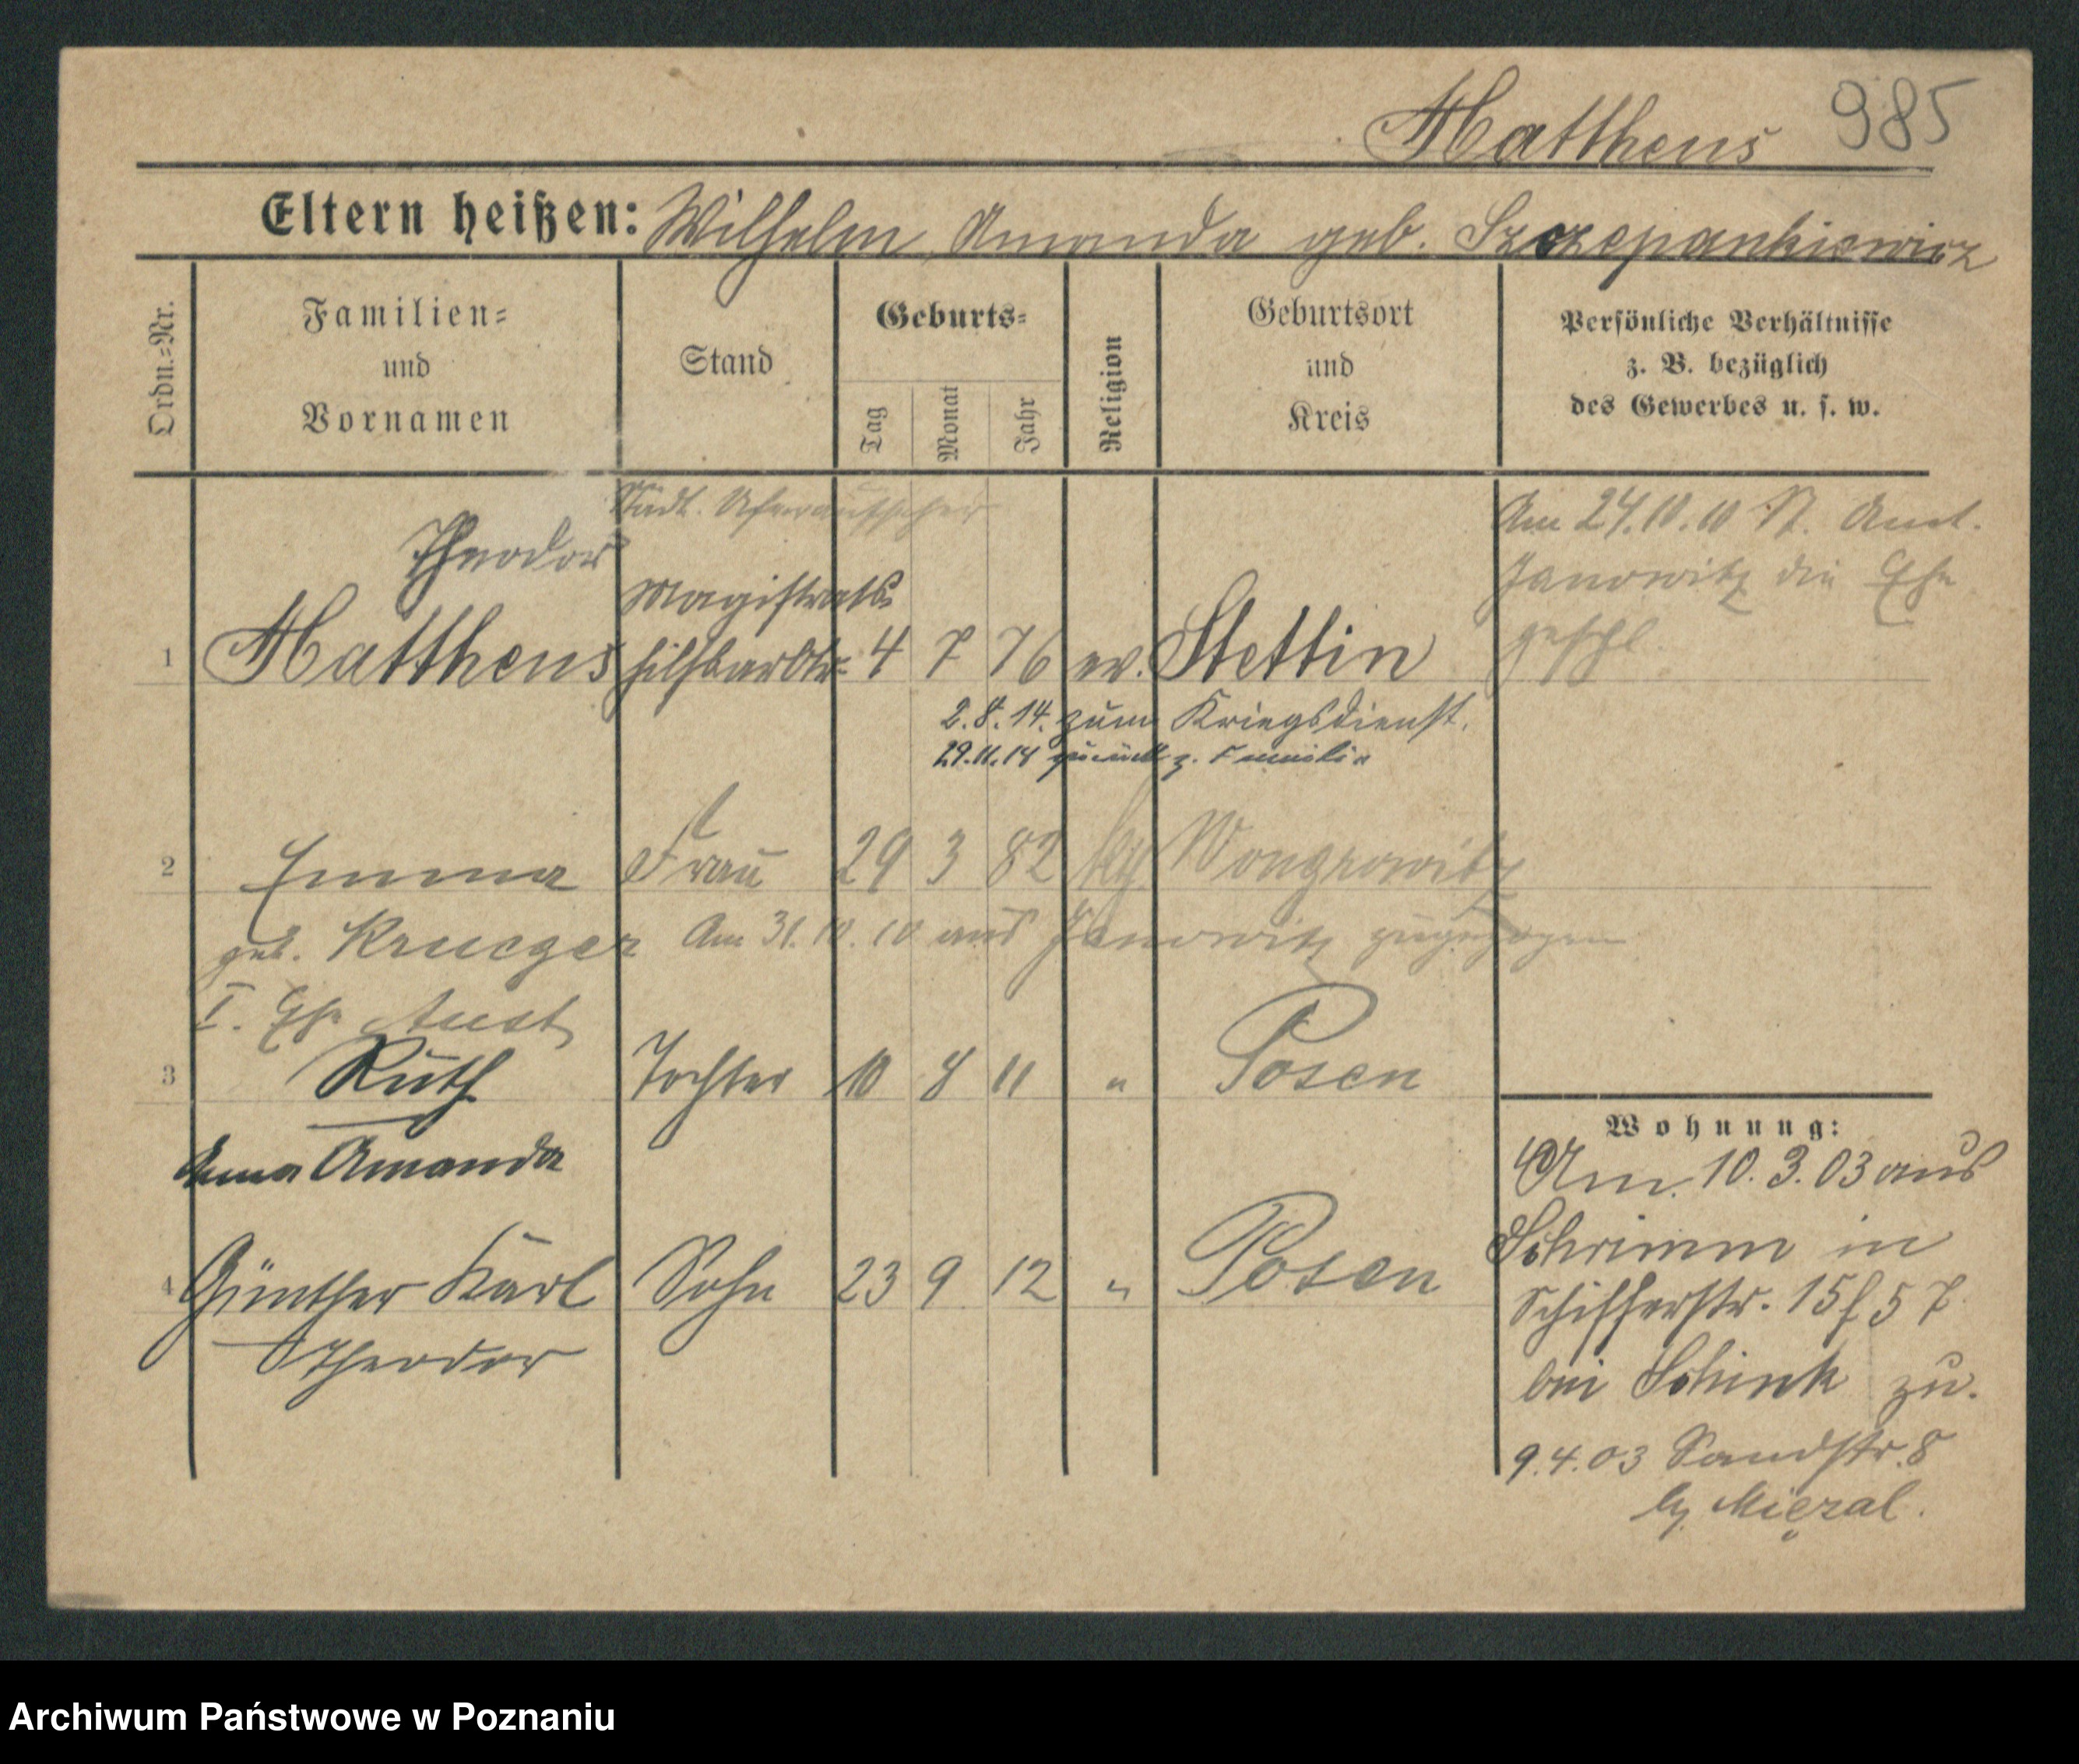 Mattheus 985
Eltern heißen: Wilhelm, Amanda geb. Szczepankiewicz
Ordn.=Nr.
Familien=
und
Vornamen
Stand
Geburts=
Tag
Monat
Jahr
Religion
Geburtsort
und
Kreis
Persönliche Verhältnisse
z. B. bezüglich
des Gewerbes u. s. w.
Städt. Uferaufseher
Theodor
Magistrats
1 Mattheus hilfs 4 7 76 ev. Stettin
Am 24.10.10 St. Amt.
Janowitz die Ehe
geschl.
2.8.14. zum Kriegsdienst.
29.11.18 zurück z. Familie
2 Emma Frau 29 3 82 Wongrowitz
geb. Krueger Am 31.10.10 aus Janowitz zugezogen
I. Ehe Aust
3 Ruth Tochter 10 8 11 " Posen
Anna Amanda
4 Günther Karl Sohn 23 9 12 " Posen
Theodor
Wohnung:
Am. 10.3.03 aus
Schrimm in
Schifferstr. 15
bei Schink zu.
9.4.03 Sandstr. 8
Archiwum Państwowe w Poznaniu